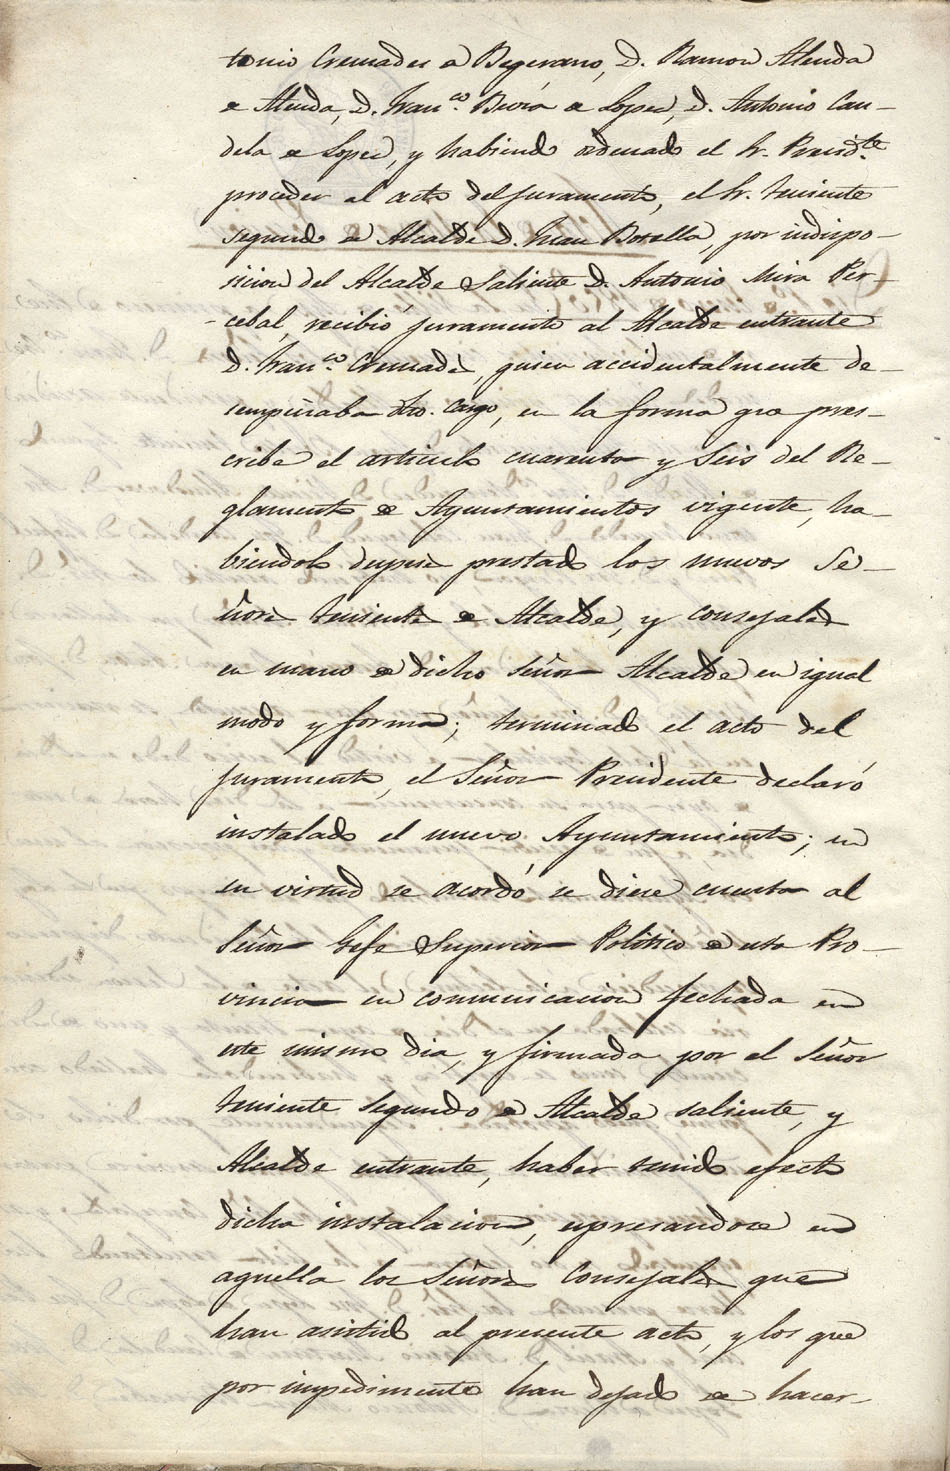 tonio Cremades de Begerano, D. Ramon Alenda
de Alenda, D. Fran.co Beviá de Lopez, D. Antonio Can-
dela de Lopez, y habiendo ordenado el Sr. Presid.te
proceder al acto del juramento, el Sr. teniente
segundo de Alcalde D. Juan Botella, por indispo-
sicion del Alcalde Saliente D. Antonio Mira Per-
cebal, recibió juramento al Alcalde entrante
D. Fran.co Cremades, quien accidentalmente de-
sempeñaba dho. cargo, en la forma que pres-
cribe el articulo cuarenta y Seis del Re-
glamento de Ayuntamientos vigente, ha-
biendolo despues prestado los nuevos Se-
ñores tenientes de Alcalde, y consejales
en mano de dicho Señor Alcalde en igual
modo y forma; terminado el acto del
juramento, el Señor Presidente declaró
instalado el nuevo Ayuntamiento; en
su virtud se acordó se diese cuenta al
Señor Gefe Superior Politico de esta Pro-
vincia en comunicacion fechada en
este mismo dia, y firmada por el Señor
teniente Segundo de Alcalde saliente, y
Alcalde entrante, haber tenido efecto
dicha instalacion, espresandose en
aquella los Señores Consejales que
han asistido al presente acto, y los que
por impedimento han dejado de hacer-